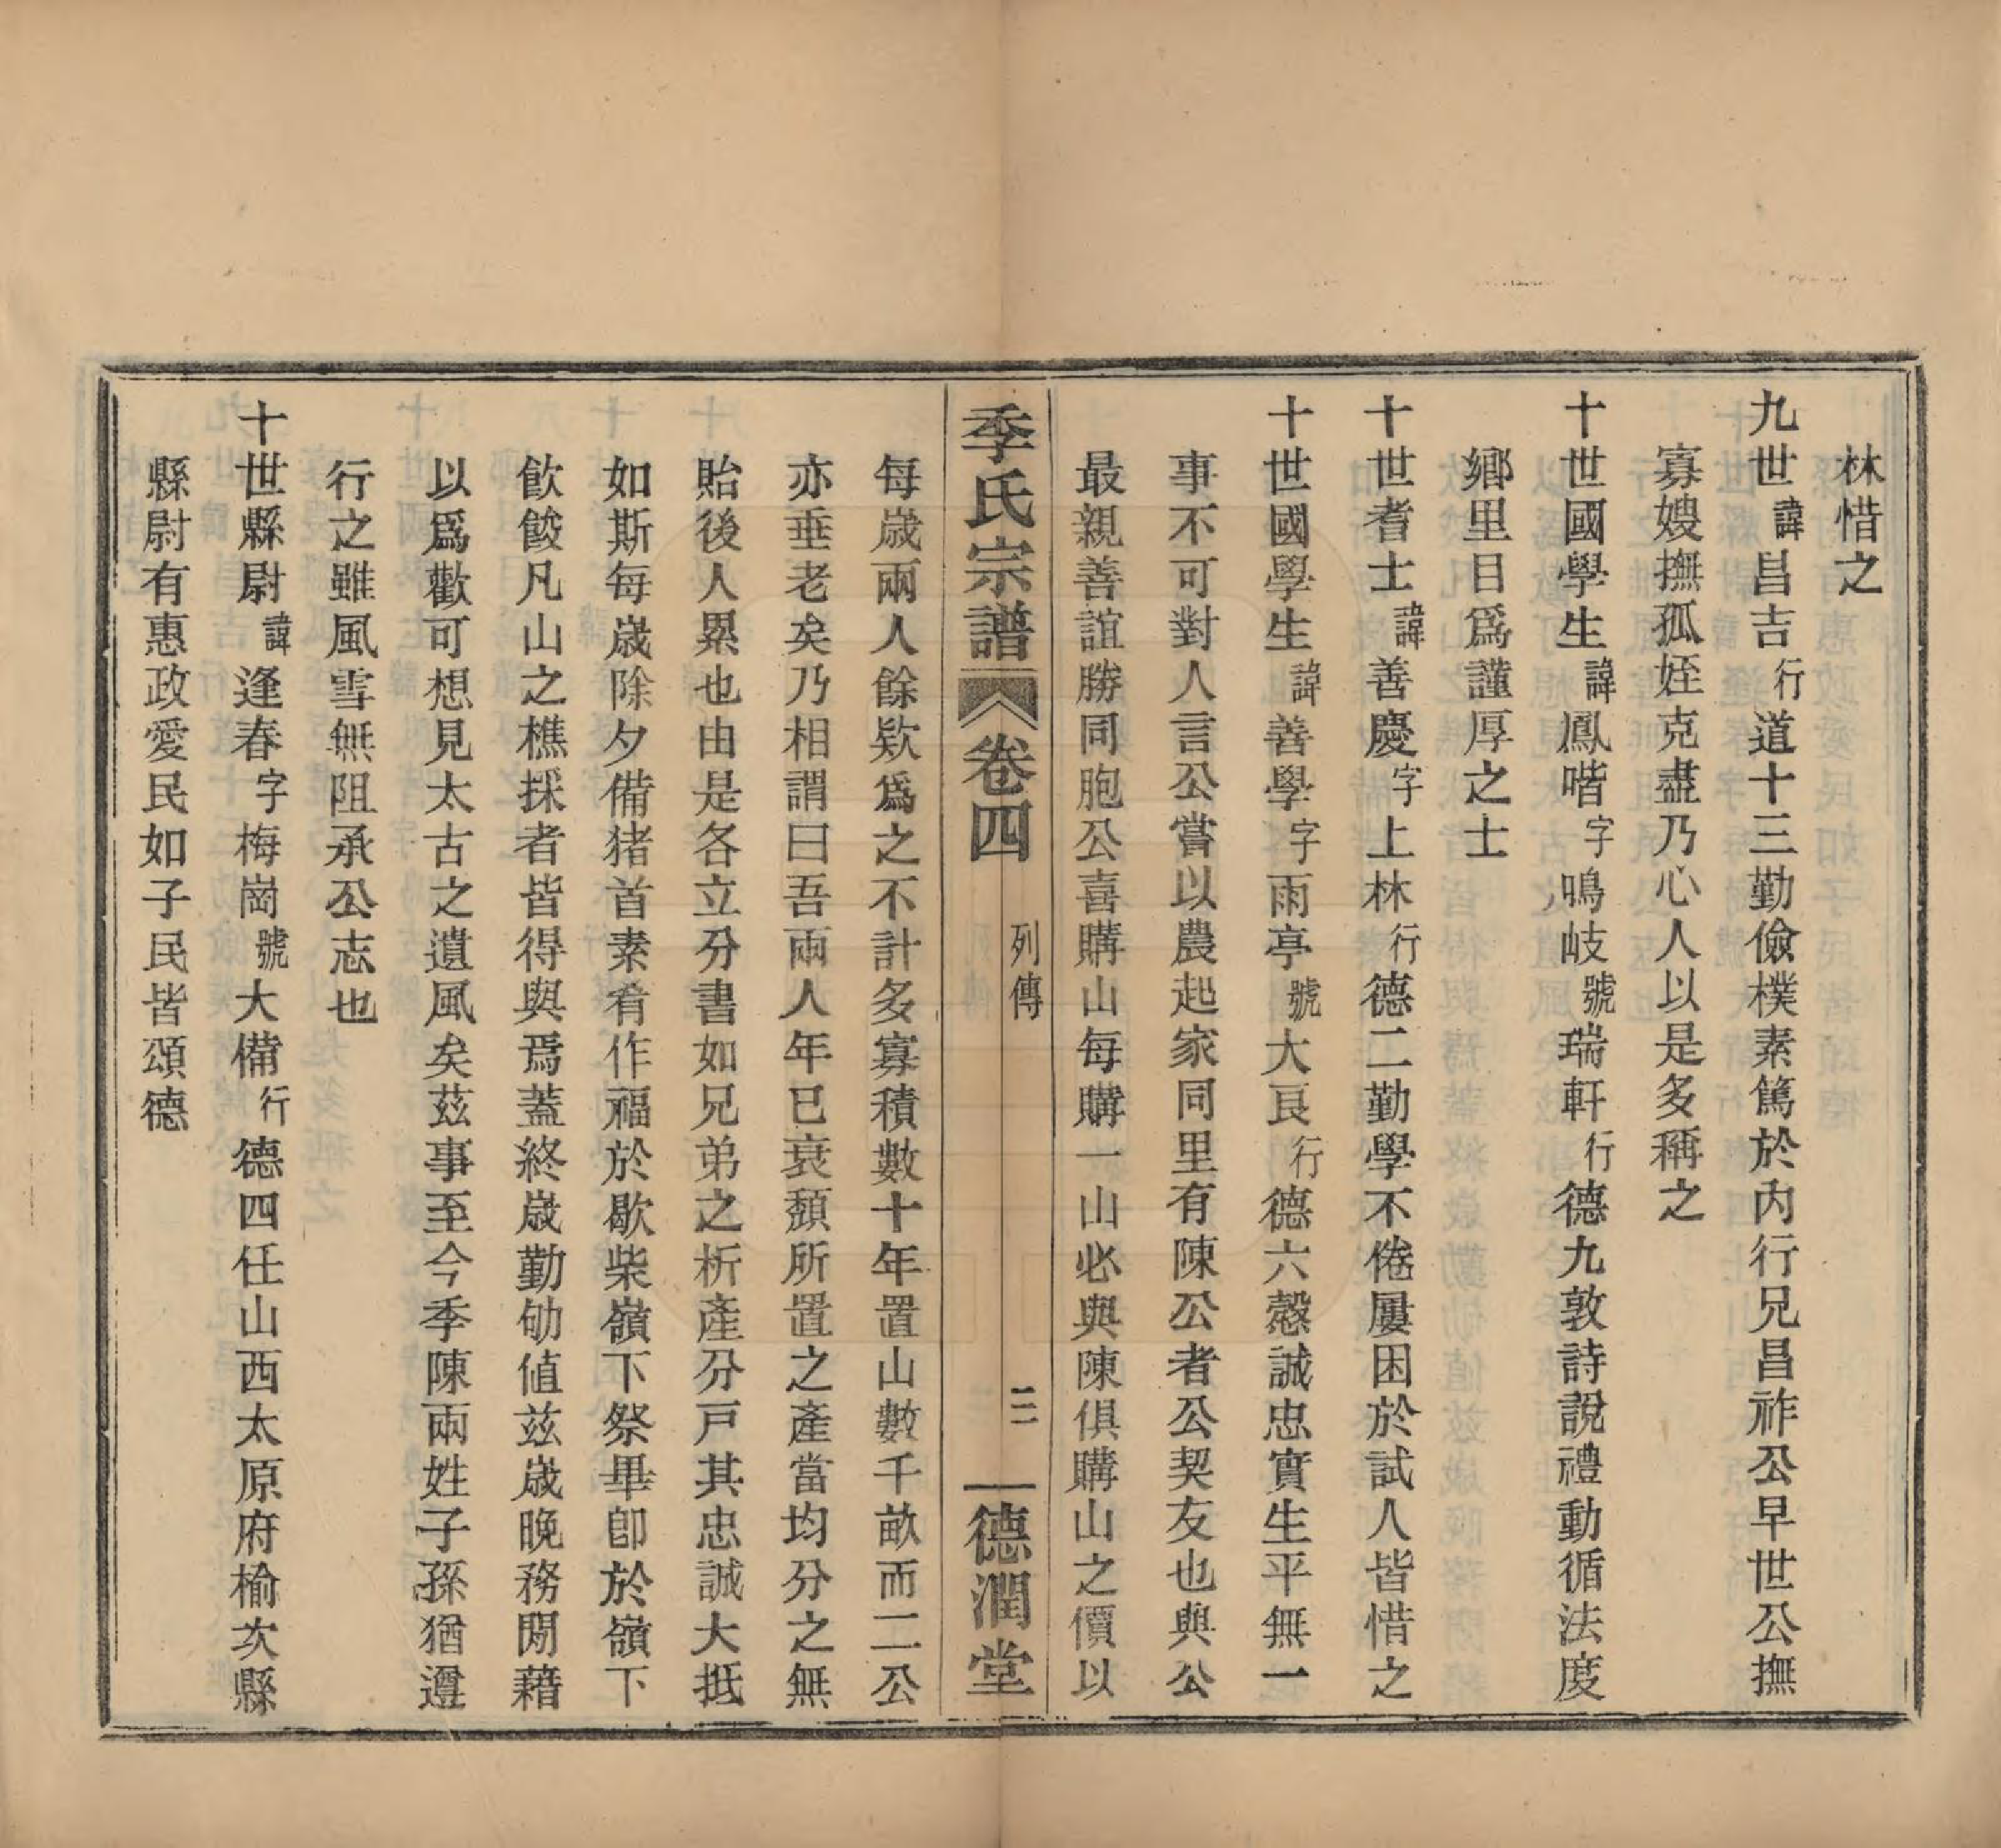 林惜之
九世諱昌吉行道十三勤儉樸素篤於內行兄昌祚公早世公撫
寡嫂撫孤姪克盡乃心人以是多稱之
十世國學生諱鳳喈字鳴岐號瑞軒行德九敦詩說禮動循法度
鄉里目爲謹厚之士
十世耆士諱善慶字上林行德二勤學不倦屢困於試人皆惜之
十世國學生諱善學字雨亭號大良行德六慤誠忠實生平無一
事不可對人言公嘗以農起家同里有陳公者公契友也與公
最親善誼勝同胞公喜購山每購一山必與陳俱購山之價以
季氏宗譜 卷四 列傳 二 德潤堂
每歲兩人餘欵爲之不計多寡積數十年置山數千畝而二公
亦垂老矣乃相謂曰吾兩人年已衰頹所置之產當均分之無
貽後人累也由是各立分書如兄弟之析產分戸其忠誠大抵
如斯每歲除夕備猪首素肴作福於歇柴嶺下祭畢卽於嶺下
飮餕凡山之樵採者皆得與焉蓋終歲勤劬值茲歲晚務閒藉
以爲歡可想見太古之遺風矣茲事至今季陳兩姓子孫猶遵
行之雖風雪無阻承公志也
十世縣尉諱逢春字梅崗號大備行德四任山西太原府榆次縣
縣尉有惠政愛民如子民皆頌德